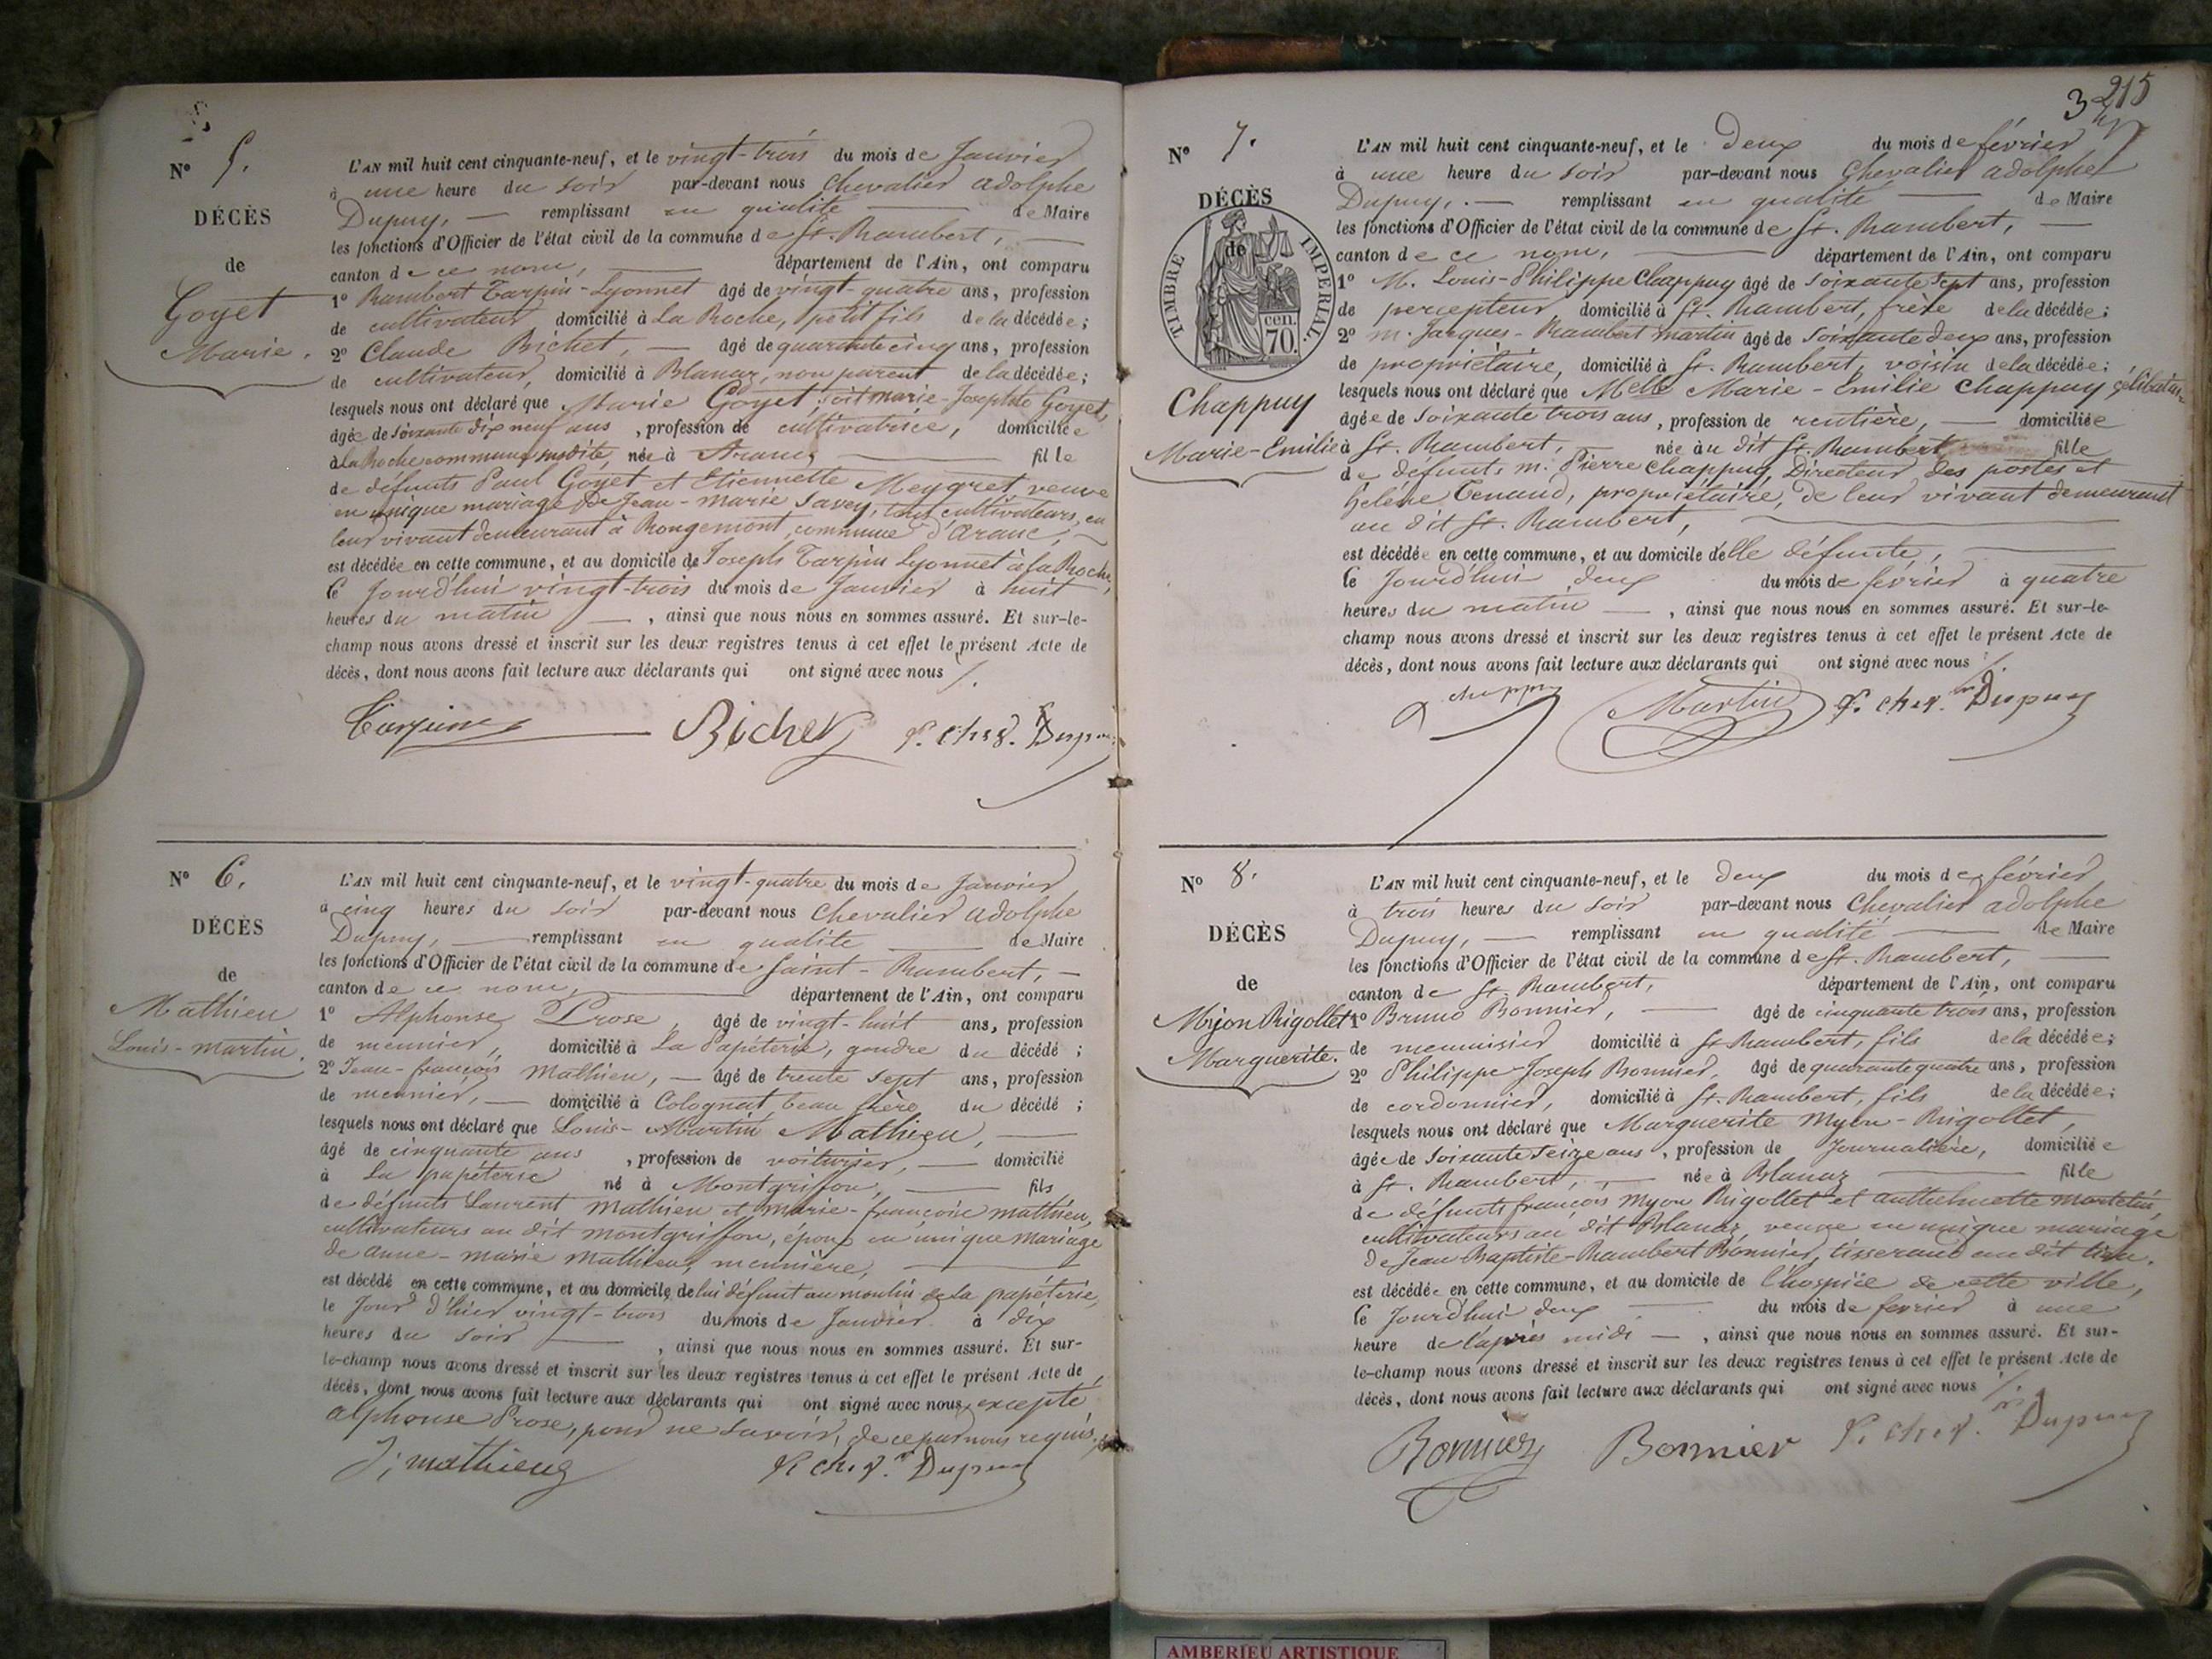 N° 5.
DÉCÈS
de
Goyet
Marie.
L'AN mil huit cent cinquante-neuf, et le vingt-trois du mois de Janvier
à une heure du soir par-devant nous Chevalier Adolphe
Dupuy, — remplissant en qualité — de Maire
les fonctions d'Officier de l'état civil de la commune de St. Rambert, —
canton de ce nom, — département de l'Ain, ont comparu
1° Rambert Tarpin-Lyonnet âgé de vingt-quatre ans, profession
de cultivateur domicilié à La Roche, petit fils de la décédée;
2° Claude Bichet, — âgé de quarante cinq ans, profession
de cultivateur, domicilié à Blanaz, non parent de la décédée;
lesquels nous ont déclaré que Marie Goyet, soit marie-Josephte Goyet,
âgée de soixante dix neuf ans, profession de cultivatrice, domiciliée
à la Roche commune susdite, née à Aranc, — fille
de défunts Paul Goyet et Etiennette Meygret veuve
en unique mariage de Jean-Marie Savey, tous cultivateurs, en
leur vivant demeurant à Rougemont, commune d'Aranc, —
est décédée en cette commune, et au domicile de Joseph Tarpin Lyonnet à la Roche,
le Jourd'hui vingt-trois du mois de Janvier à huit
heures du matin —, ainsi que nous nous en sommes assuré. Et sur-le-
champ nous avons dressé et inscrit sur les deux registres tenus à cet effet le présent Acte de
décès, dont nous avons fait lecture aux déclarants qui ont signé avec nous /.
Tarpin Bichet P. Cher. Dupuy
N° 6.
DÉCÈS
de
Mathieu
Louis-martin.
L'AN mil huit cent cinquante-neuf, et le vingt-quatre du mois de Janvier
à cinq heures du soir par-devant nous Chevalier Adolphe
Dupuy, — remplissant en qualité — de Maire
les fonctions d'Officier de l'état civil de la commune de Saint-Rambert, —
canton de ce nom, — département de l'Ain, ont comparu
1° Alphonse Prose âgé de vingt-huit ans, profession
de meunier, domicilié à La Papéterie, gendre du décédé;
2° Jean-françois Mathieu, — âgé de trente sept ans, profession
de meunier, — domicilié à Colognat, beau frère du décédé;
lesquels nous ont déclaré que Louis-Martin Mathieu, —
âgé de cinquante ans, profession de voiturier, — domicilié
à La papéterie né à Montgriffon, — fils
de défunts Laurent Mathieu et Marie-françoise mathieu,
cultivateurs au dit montgriffon, époux en unique mariage
de anne-marie mathieu, meunière, —
est décédé en cette commune, et au domicile de lui défunt au moulin de la papéterie,
le Jour d'hier vingt-trois du mois de Janvier à dix
heures du soir —, ainsi que nous nous en sommes assuré. Et sur-
le-champ nous avons dressé et inscrit sur les deux registres tenus à cet effet le présent Acte de
décès, dont nous avons fait lecture aux déclarants qui ont signé avec nous, excepté
alphonse Prose, pour ne savoir, de ce par nous requis,
J; mathieu P. cher. Dupuy
3 215
N° 7.
DÉCÈS
de
TIMBRE IMPERIAL.
cen. 70.
Chappuy
Marie-Emilie
L'AN mil huit cent cinquante-neuf, et le deux du mois de février
à une heure du soir par-devant nous Chevalier adolphe
Dupuy, — remplissant en qualité — de Maire
les fonctions d'Officier de l'état civil de la commune de St. Rambert, —
canton de ce nom, — département de l'Ain, ont comparu
1° M. Louis-Philippe Chappuy âgé de soixante sept ans, profession
de percepteur domicilié à St. Rambert, frère de la décédée;
2° m. Jacques-Rambert martin âgé de soixante deux ans, profession
de propriétaire, domicilié à St. Rambert, voisin de la décédée;
lesquels nous ont déclaré que Melle Marie-Emilie Chappuy, célibataire
âgée de soixante trois ans, profession de rentière, — domiciliée
à St. Rambert, — née au dit St. Rambert fille
de défunts m. Pierre Chappuy, Directeur des postes et
hélène Tenand, propriétaire, de leur vivant demeurant
au dit St. Rambert, —
est décédée en cette commune, et au domicile d'elle défunte, —
le Jourd'hui deux du mois de février à quatre
heures du matin —, ainsi que nous nous en sommes assuré. Et sur-le-
champ nous avons dressé et inscrit sur les deux registres tenus à cet effet le présent Acte de
décès, dont nous avons fait lecture aux déclarants qui ont signé avec nous /.
chappuy Martin P. Cher. Dupuy
N° 8.
DÉCÈS
de
Mijon Rigollet
Marguerite.
L'AN mil huit cent cinquante-neuf, et le deux du mois de février
à trois heures du soir par-devant nous Chevalier adolphe
Dupuy, — remplissant en qualité — de Maire
les fonctions d'Officier de l'état civil de la commune de St. Rambert, —
canton de St. Rambert, département de l'Ain, ont comparu
1° Bruno Bonnier, — âgé de cinquante trois ans, profession
de menuisier domicilié à St Rambert, fils de la décédée;
2° Philippe-Joseph Bonnier, âgé de quarante quatre ans, profession
de cordonnier, domicilié à St. Rambert, fils de la décédée;
lesquels nous ont déclaré que Marguerite Myon-Rigollet,
âgée de soixante seize ans, profession de Journalière, domiciliée
à St. Rambert, — née à Blanaz — fille
de défunts françois Myon Rigollet et anthelmette Martelin,
cultivateurs au dit Blanaz, veuve en unique mariage
de Jean Baptiste-Rambert Bonnier, tisserand au dit lieu.
est décédée en cette commune, et au domicile de l'hospice de cette ville,
le Jourd'hui deux — du mois de février à une
heure de l'après midi —, ainsi que nous nous en sommes assuré. Et sur-
le-champ nous avons dressé et inscrit sur les deux registres tenus à cet effet le présent Acte de
décès, dont nous avons fait lecture aux déclarants qui ont signé avec nous /.
Bonnier Bonnier P. cher. Dupuy
AMBERIEU ARTISTIQUE